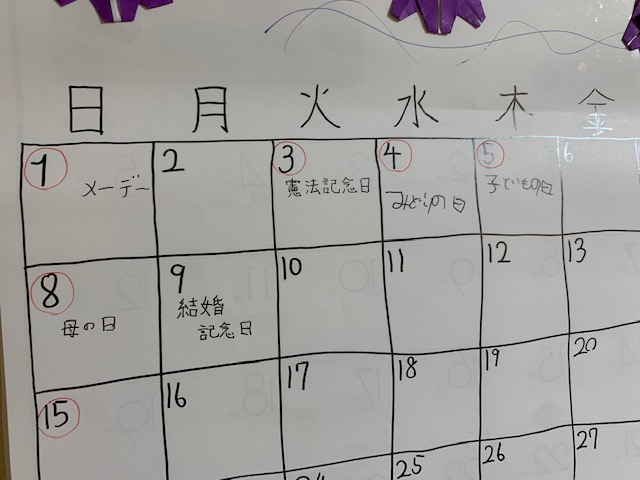 日 月 火 水 木 金
1 2 3 4 5 6
メーデー 憲法記念日 みどりの日 子どもの日
8 9 10 11 12 13
母の日 結婚
記念日
15 16 17 18 19 20
25 26 27